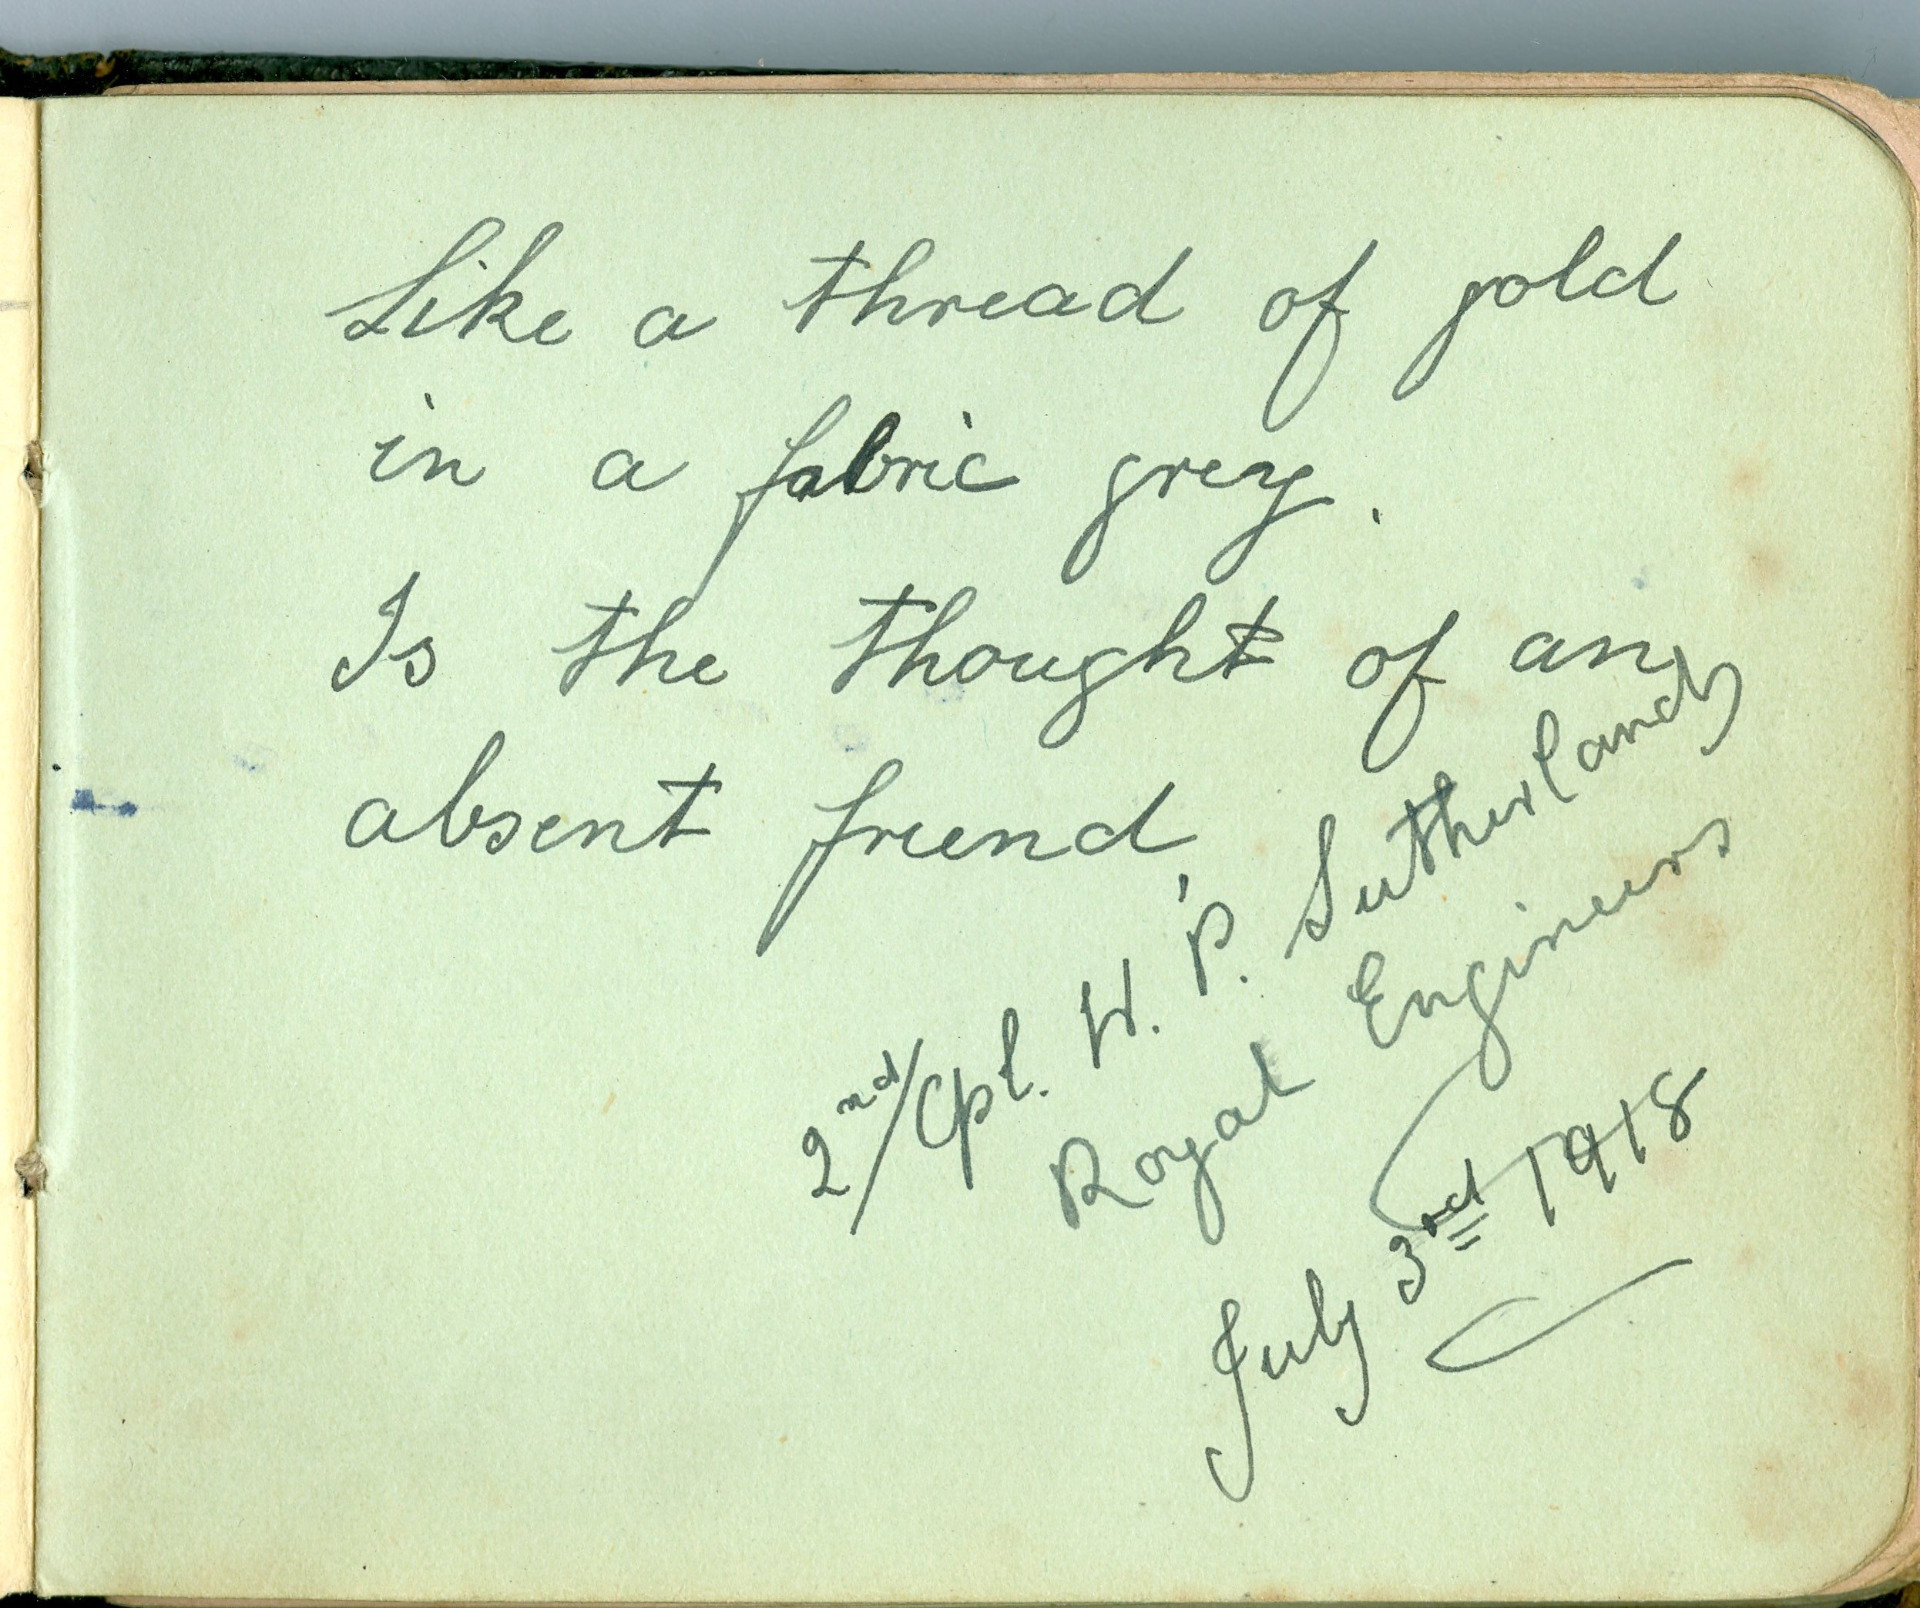 Like a thread of gold
in a fabric grey.
Is the thought of an
absent friend,
2nd/Cpl. W. P. Sutherland,
Royal Engineers
July 3rd 1918